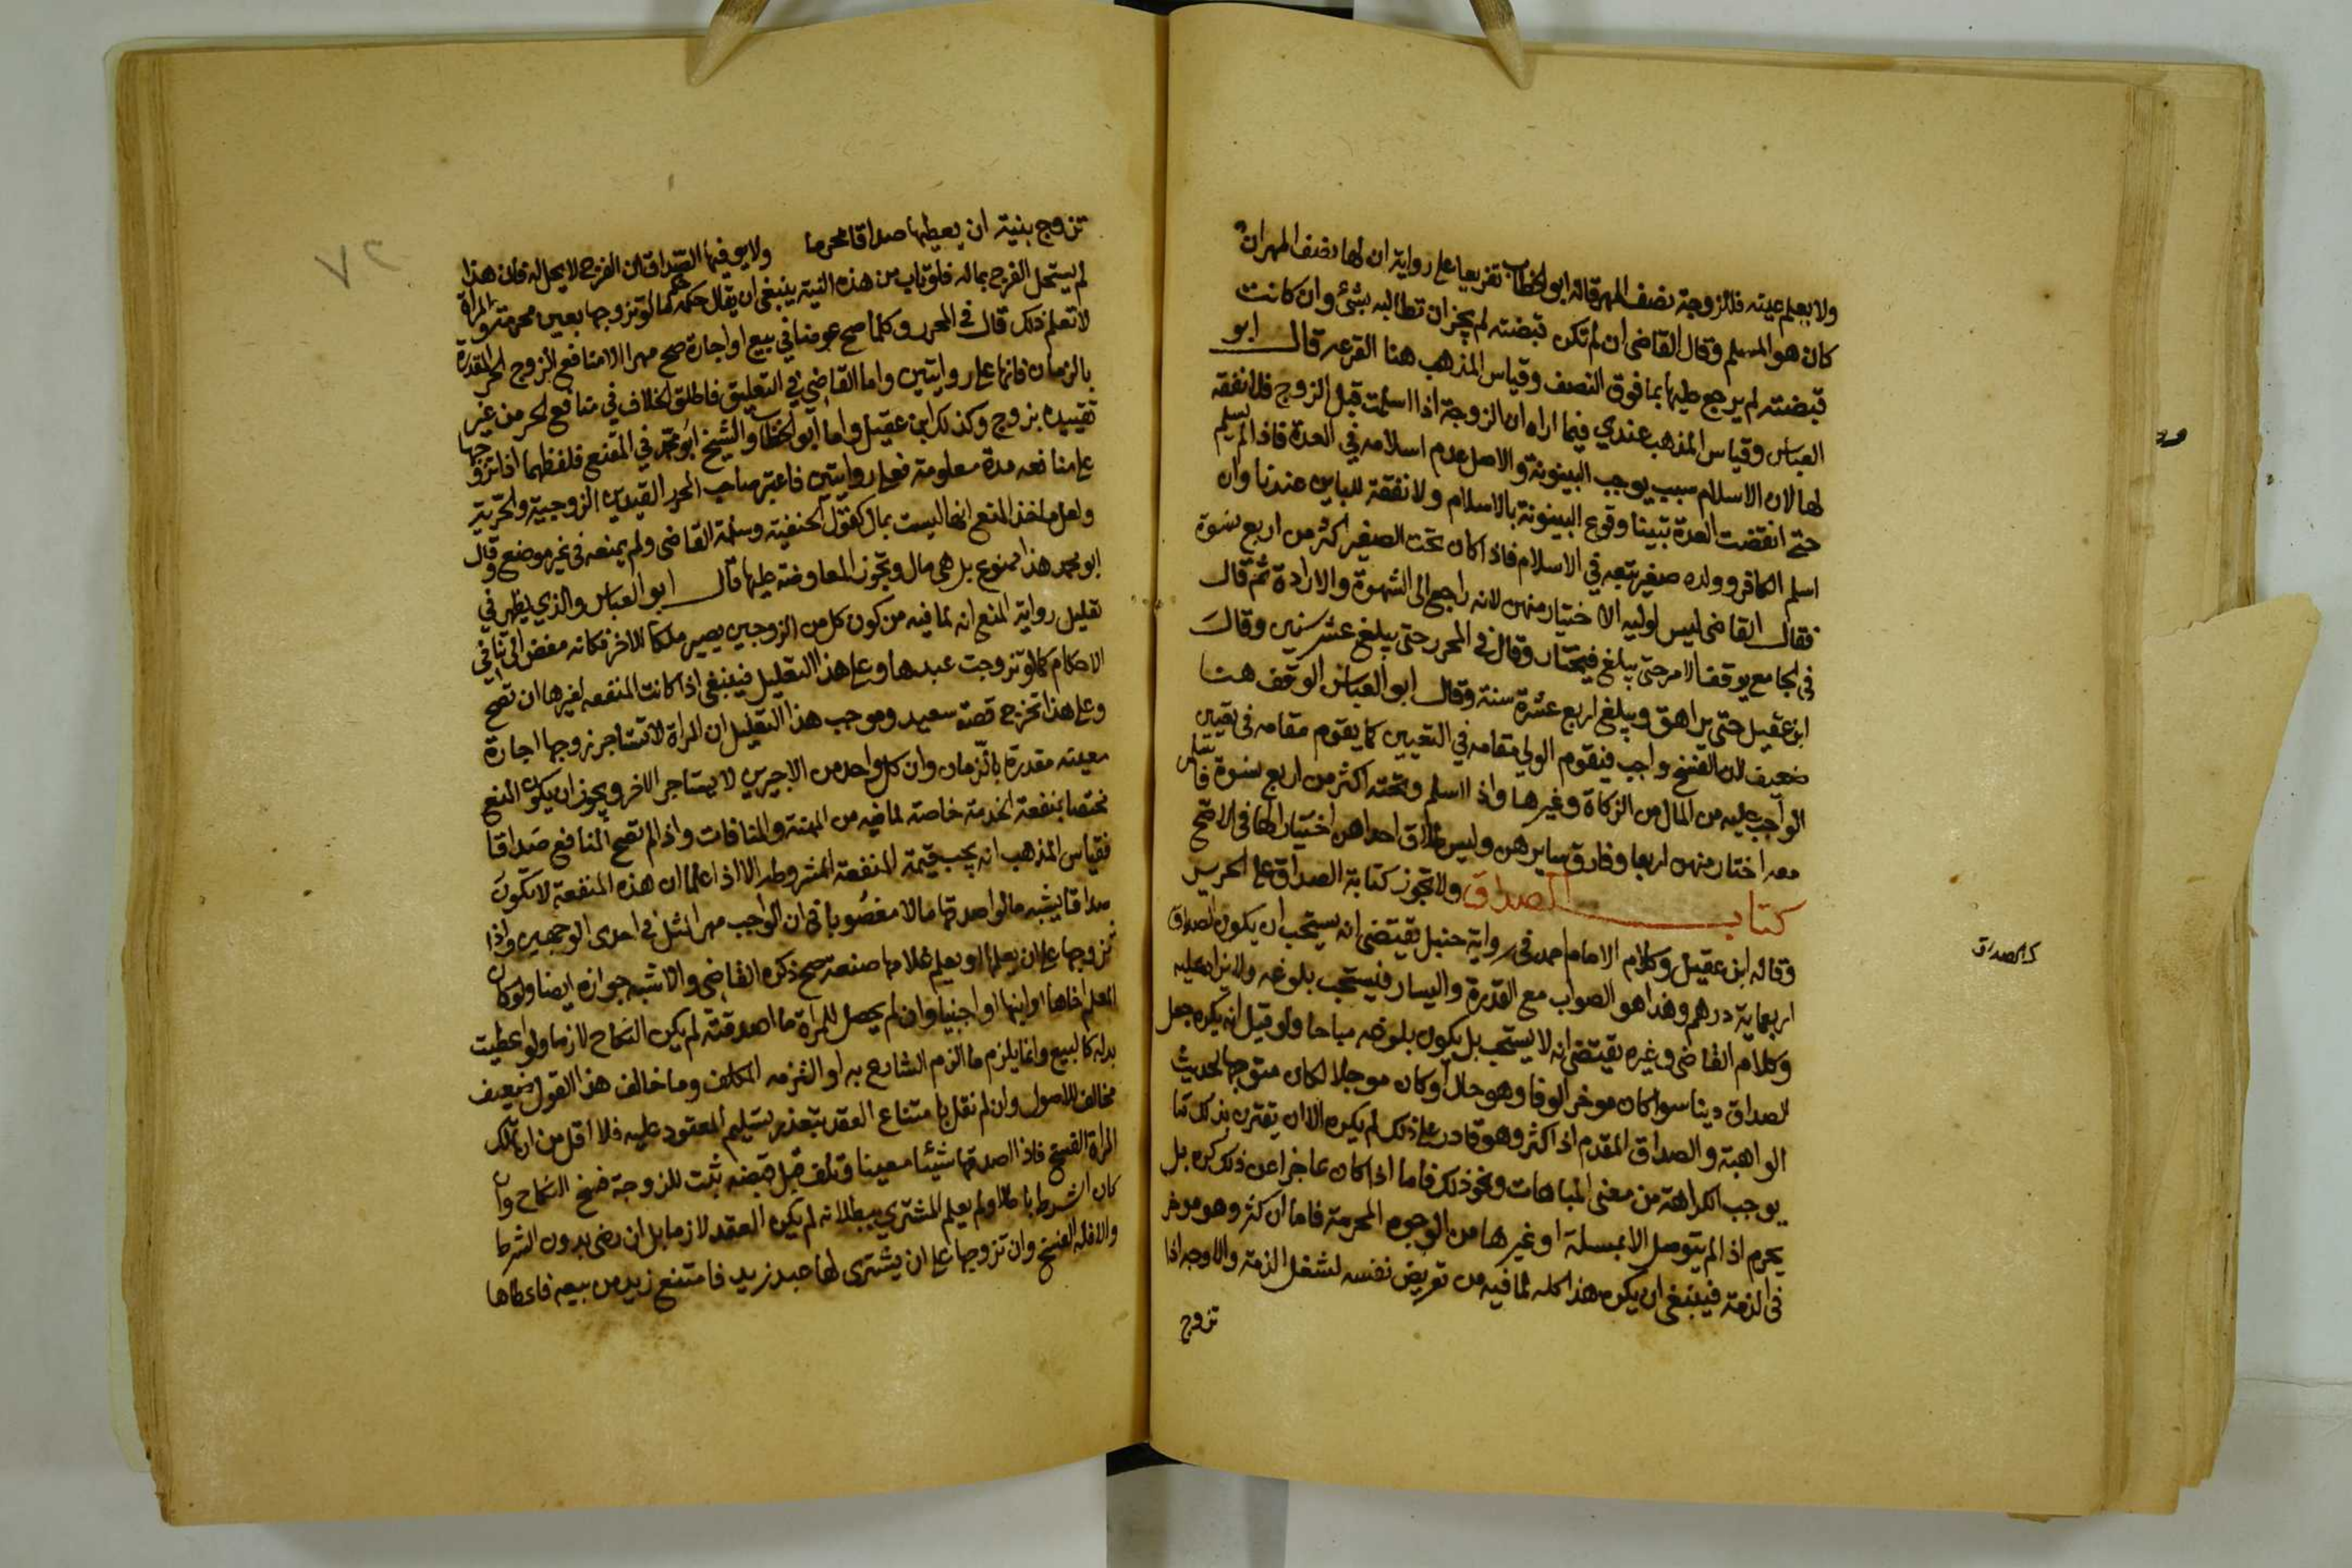 ولا يعلم عينه فللزوجة نصف المهر قاله ابو الخطاب تفريعا على رواية ان لها نصف المهر ان
كان هو المسلم وقال القاضي ان لم تكن قبضته لم يجز ان تطالبه بشئ وان كانت
قبضته لم يرجع عليها بما فوق النصف وقياس المذهب هنا القرعه قال ابو
العباس وقياس المذهب عندي فيما اراه ان الزوجة اذا اسلمت قبل الزوج فلا نفقة
لها لان الاسلام سبب يوجب البينونة والاصل عدم اسلامه في العدة فاذا لم يسلم
حتى انقضت العدة تبينا وقوع البينونة بالاسلام ولا نفقة للباين عندنا وان
اسلم الكافر وولده صغير تبعه في الاسلام فاذا كان تحت الصغير اكثر من اربع نسوة
فقال القاضي ليس لوليه الاختيار منهن لانه راجع الى الشهوة والارادة ثم قال
في الجامع يوقف الامر حتى يبلغ فيختار وقال في المحرر حتى يبلغ عشر سنين وقال
ابن عقيل حتى يراهق ويبلغ اربع عشرة سنة وقال ابو العباس الوقف هنا
ضعيف لان الفسخ واجب فيقوم الولي مقامه في التعيين كما يقوم مقامه في تعيين
الواجب عليه من المال من الزكاة وغيرها واذا اسلم وتحته اكثر من اربع نسوة فاسلمن
معه اختار منهن اربعا وفارق سايرهن وليس طلاق احداهن اختيارا لها في الاصح
كتاب الصداق ولا تجوز كتابة الصداق على الحرير
كتاب الصداق
وقاله ابن عقيل وكلام الامام احمد في رواية حنبل يقتضي انه يستحب ان يكون الصداق
اربعماية درهم وهذا هو الصواب مع القدرة واليسار فيستحب بلوغه ولا يزاد عليه
وكلام القاضي وغيره يقتضي انه لا يستحب بل يكون بلوغه مباحا ولو قيل انه يكره جعل
الصداق دينا سوا كان موخر الوفا وهو حال او كان موجلا لكان متوجها لحديث
الواهبة والصداق المقدم اذا كثر وهو قادر على ذلك لم يكره الا ان يقترن بذلك ما
يوجب الكراهة من معنى المباهات ونحو ذلك فاما اذا كان عاجزا عن ذلك كره بل
يحرم اذا لم يتوصل الا بمسلة او غيرها من الوجوه المحرمة فاما ان كثر وهو موخر
في الذمة فينبغي ان يكره هذا كله لما فيه من تعريض نفسه لشغل الذمة والاوجه اذا
تزوج
تزوج بنية ان يعطيها صداقا محرما ولا يوفيها الصداق ان الفرج لا يحل له فان هذا
لم يستحل الفرج بماله فلو تاب من هذه النية ينبغي ان يقال حكمه حكم ما لو تزوجها بعين محرمة والمراة
لا تعلم ذلك قال في المحرر وكلما صح عوضا في بيع او اجارة صح مهرا الا منافع الزوج الحر المقدرة
بالزمان فانها على روايتين واما القاضي في التعليق فاطلق الخلاف في منافع الحر من غير
تقييده بزوج وكذلك ابن عقيل واما ابو الخطاب والشيخ ابو محمد في المقنع فلفظهما اذا تزوجها
على منافعه مدة معلومة فعلى روايتين فاعتبر صاحب المحرر القيدين الزوجية والحرية
ولعل ماخذ المنع انها ليست بمال كقول الحنفية وسلمه القاضي ولم يمنعه في غير موضع وقال
ابو محمد هذا ممنوع بل هي مال وتجوز المعاوضة عليها قال ابو العباس والذي يظهر في
تعليل رواية المنع انه لما فيه من كون كل من الزوجين يصير ملكا للاخر فكانه مفض الى تنافي
الاحكام كما لو تزوجت عبدها وعلى هذا التعليل فينبغي اذا كانت المنفعه لغيرها ان تصح
وعلى هذا تخرج قصة سعيد وموجب هذا التعليل ان المراة لا تستاجر زوجها اجارة
معينه مقدرة بالزمان وان كل واحد من الاجيرين لا يستاجر الاخر ويجوز ان يكون المنع
مختصا بمنفعة الخدمة خاصة لما فيه من المهنة والمنافات واذا لم تصح المنافع صداقا
فقياس المذهب انه يجب قيمة المنفعة المشروطه الا اذا علما ان هذه المنفعة لا تكون
صداقا يشبه ما لو اصدقها مالا مغصوبا في ان الواجب مهر المثل في احدى الوجهين واذا
تزوجها على ان يعلمها او يعلم غلامها صنعة صح ذكره القاضي والاشبه جوازه ايضا ولو كان
المعلم اخاها او ابنها او اجنبيا وان لم يحصل للمراة ما اصدقته لم يكن النكاح لازما ولو اعطيت
بدله كالبيع وانما يلزم ما الزم الشارع به او التزمه المكلف وما خالف هذا القول ضعيف
مخالف للاصول وان لم نقل بامتناع العقد بتعذر تسليم المعقود عليه فلا اقل من ان تملك
المراة الفسخ فاذا اصدقها شيئا معينا وتلف قبل قبضه ثبت للزوجة فسخ النكاح وان
كان الشرط باطلا ولم يعلم المشتري ببطلانه لم يكن العقد لازما بل ان رضي بدون الشرط
والا فله الفسخ وان تزوجها على ان يشتري لها عبد زيد فامتنع زيد من بيعه فاعطاها